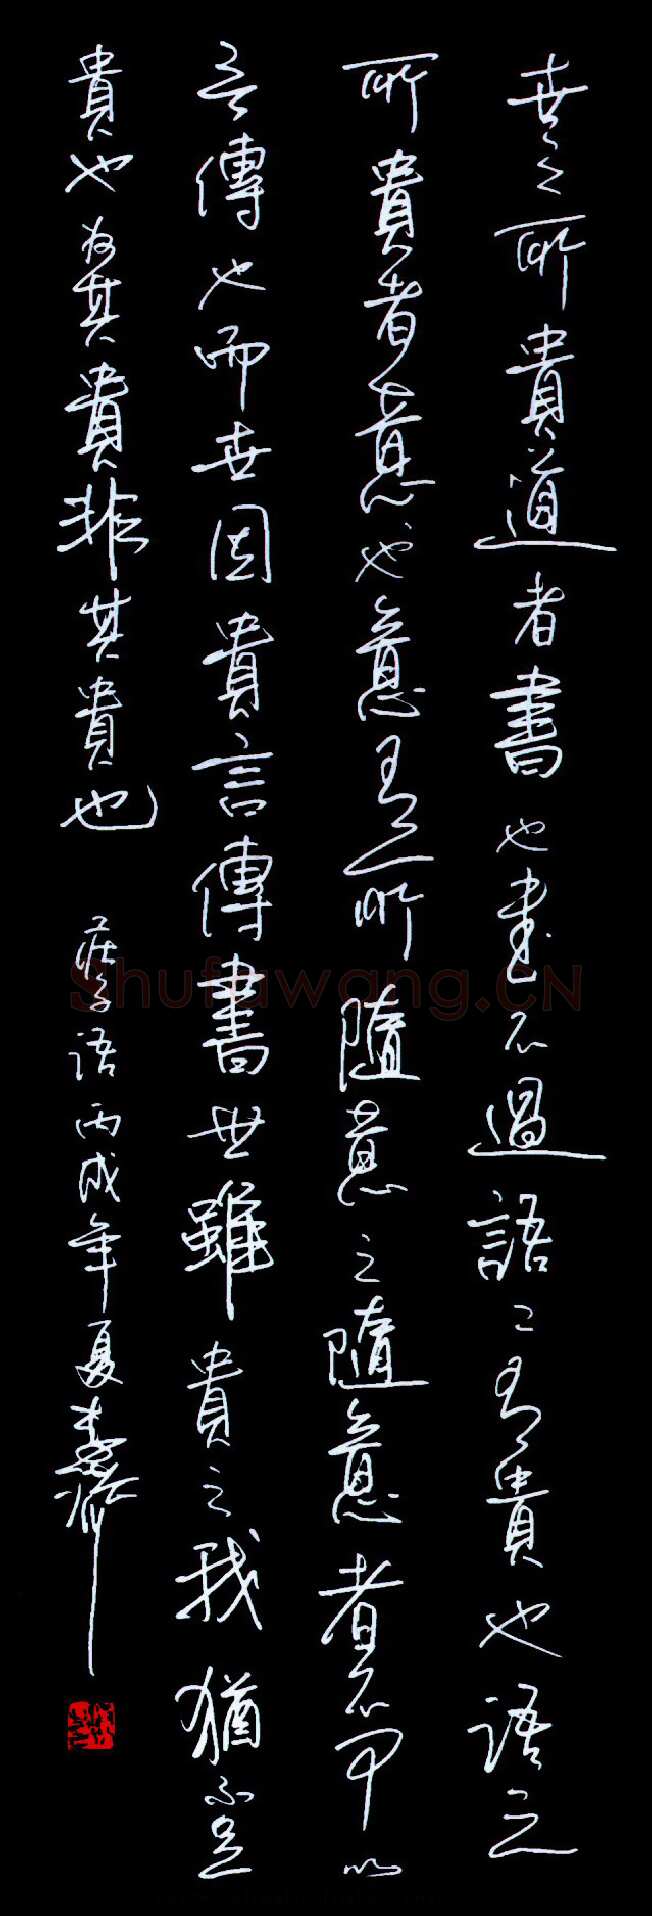 世之所貴道者書也書不過語〻有貴也語之
所貴者意也意有所隨意之隨意者不可以
言傳也而世因貴言傳書世雖貴之我猶不足
貴也為其貴非其貴也 莊子語丙戌年夏
Shufawang.CN